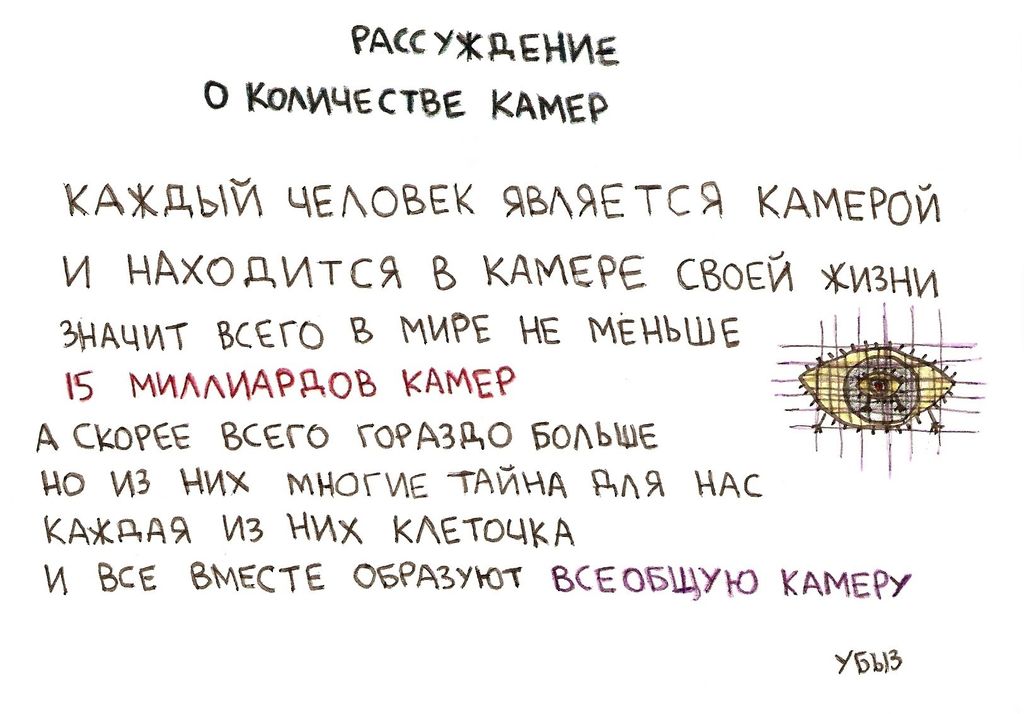 РАССУЖДЕНИЕ
О КОЛИЧЕСТВЕ КАМЕР
КАЖДЫЙ ЧЕЛОВЕК ЯВЛЯЕТСЯ КАМЕРОЙ
И НАХОДИТСЯ В КАМЕРЕ СВОЕЙ ЖИЗНИ
ЗНАЧИТ ВСЕГО В МИРЕ НЕ МЕНЬШЕ
15 МИЛЛИАРДОВ КАМЕР
А СКОРЕЕ ВСЕГО ГОРАЗДО БОЛЬШЕ
НО ИЗ НИХ МНОГИЕ ТАЙНА ДЛЯ НАС
КАЖДАЯ ИЗ НИХ КЛЕТОЧКА
И ВСЕ ВМЕСТЕ ОБРАЗУЮТ ВСЕОБЩУЮ КАМЕРУ
УБЫЗ